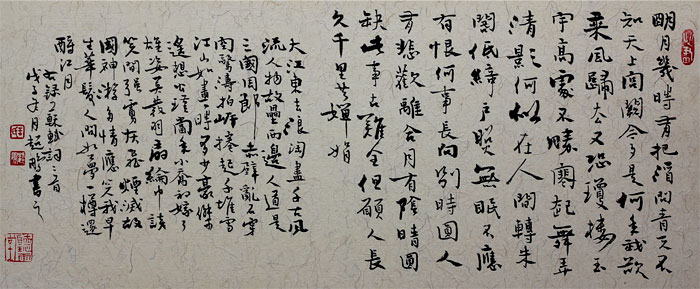 明月幾時有把酒問青天不
知天上宮闕今夕是何年我欲
乘風歸去又恐瓊樓玉
宇高處不勝寒起舞弄
清影何似在人間轉朱
閣低綺戶照無眠不應
有恨何事長向別時圓人
有悲歡離合月有陰晴圓
缺此事古難全但願人長
久千里共嬋娟
大江東去浪淘盡千古風
流人物故壘西邊人道是
三國周郎赤壁亂石穿
空驚濤拍岸捲起千堆雪
江山如畫一時多少豪傑
遙想公瑾當年小喬初嫁了
雄姿英發羽扇綸巾談
笑間強虜灰飛煙滅故
國神遊多情應笑我早
生華髮人間如夢一樽還
酹江月
錄蘇軾詞二首
戊子月書